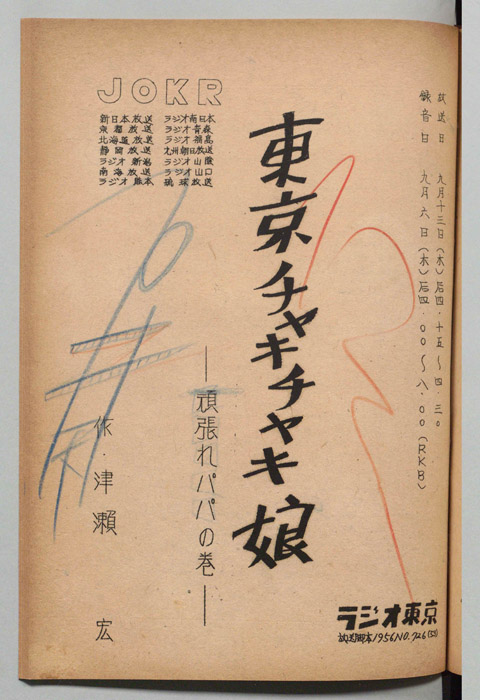 放送日 九月十三日(木)后四・十五〜四・三〇
録音日 九月六日(木)后四・〇〇〜八・〇〇(RKB)
東京チャキチャキ娘
―頑張れパパの巻―
JOKR
新日本放送 ラジオ南日本
放送 ラジオ青森
北海道放送 ラジオ福島
静岡放送 九州朝日放送
ラジオ新潟 ラジオ山陰
南海放送 ラジオ山口
ラジオ熊本 琉球放送
作・津瀬 宏
ラジオ東京
放送台本1956NO.726